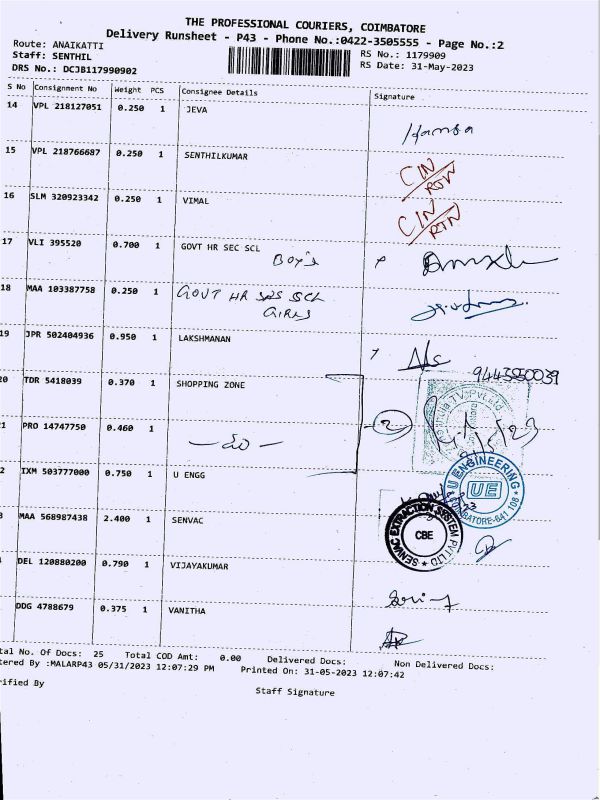 THE PROFESSIONAL COURIERS, COIMBATORE
Delivery Runsheet - P43 - Phone No.:0422-3505555 - Page No.:2
Route: ANAIKATTI RS No.: 1179909
Staff: SENTHIL RS Date: 31-May-2023
DRS No.: DCJB117990902
S No Consignment No Weight PCS Consignee Details Signature
14 VPL 218127051 0.250 1 JEVA Hamsa
15 VPL 218766687 0.250 1 SENTHILKUMAR CIN
RTN
16 SLM 320923342 0.250 1 VIMAL CIN
RTN
17 VLI 395520 0.700 1 GOVT HR SEC SCL
BOY'S
18 MAA 103387758 0.250 1 GOVT HR SES SCL
GIRLS
19 JPR 502404936 0.950 1 LAKSHMANAN
9443550039
20 TDR 5418039 0.370 1 SHOPPING ZONE
2
1 PRO 14747750 0.460 1 - do -
2 IXM 503777000 0.750 1 U ENGG
U ENGINEERING
UE
COIMBATORE-641 108
3 MAA 568987438 2.400 1 SENVAC
SENVAC EXTRACTION SYSTEM PVT LTD
CBE
DEL 120880200 0.790 1 VIJAYAKUMAR
DDG 4788679 0.375 1 VANITHA
tal No. Of Docs: 25 Total COD Amt: 0.00 Delivered Docs: Non Delivered Docs:
tered By :MALARP43 05/31/2023 12:07:29 PM Printed On: 31-05-2023 12:07:42
rified By
Staff Signature